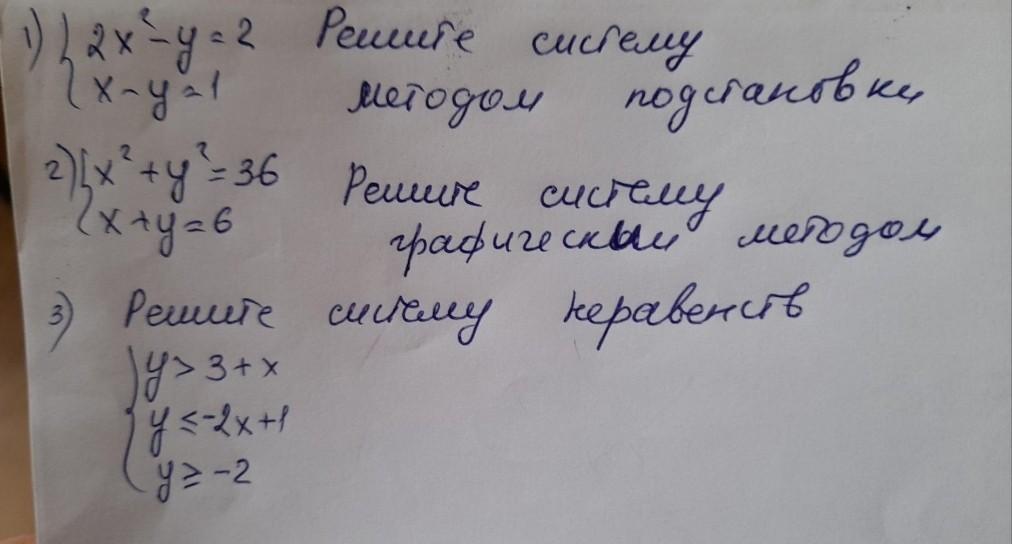 1) { 2x² - y = 2 Решите систему
x - y = 1 методом подстановки
2) { x² + y² = 36 Решите систему
x + y = 6 графическим методом
3) Решите систему неравенств
{ y > 3 + x
y ≤ -2x + 1
y ≥ -2